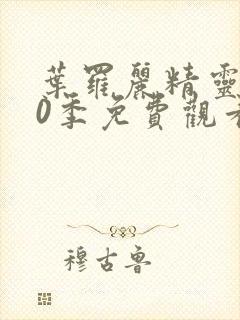 葉羅麗精靈
0季免費觀看
穆古魯